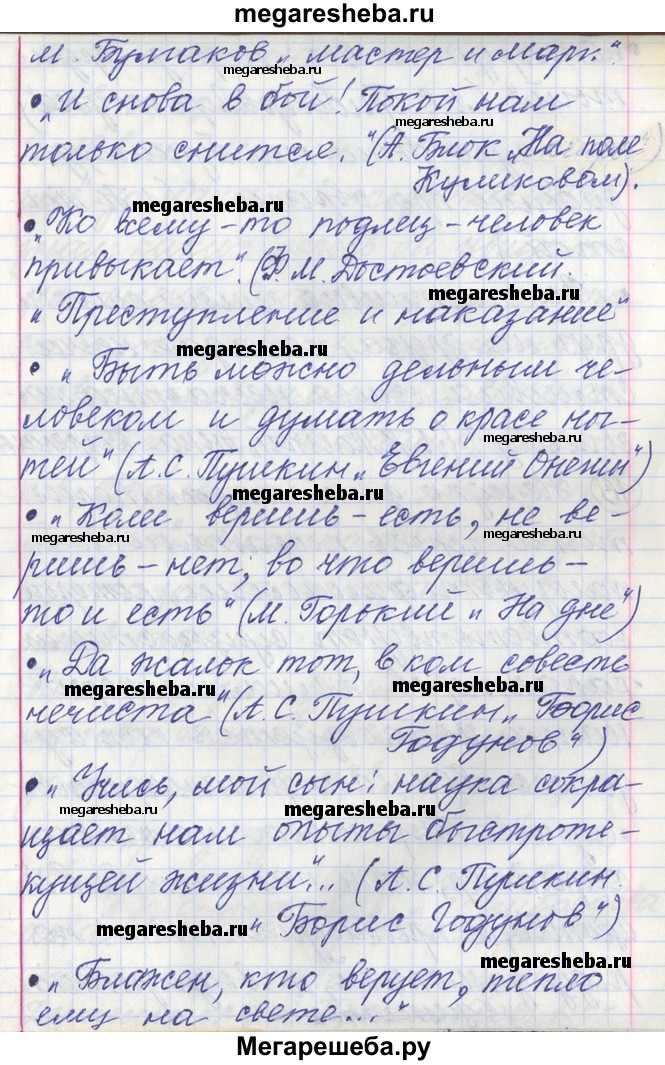 megaresheba.ru
М. Булгаков „мастер и Марг."
megaresheba.ru
• „И снова в бой! Покой нам
megaresheba.ru
только снится." (А. Блок „На поле
Куликовом).
megaresheba.ru
• „Ко всему-то подлец - человек
привыкает". (Ф. М. Достоевский.
megaresheba.ru
„Преступление и наказание"
megaresheba.ru
• „Быть можно дельным че-
ловеком и думать о красе ног-
megaresheba.ru
тей" (А.С. Пушкин „Евгений Онегин")
megaresheba.ru
• „Коли веришь - есть, не ве-
megaresheba.ru megaresheba.ru
ришь - нет; во что веришь -
то и есть" (М. Горький „На дне")
• „Да жалок тот, в ком совесть
megaresheba.ru megaresheba.ru
нечиста" (А.С. Пушкин „Борис
Годунов")
• „Учись, мой сын: наука сокра-
megaresheba.ru megaresheba.ru
щает нам опыты быстроте-
кущей жизни"... (А.С. Пушкин.
megaresheba.ru „Борис Годунов")
megaresheba.ru
• „Блажен, кто верует, тепло
ему на свете..."
Мегарешеба.ру